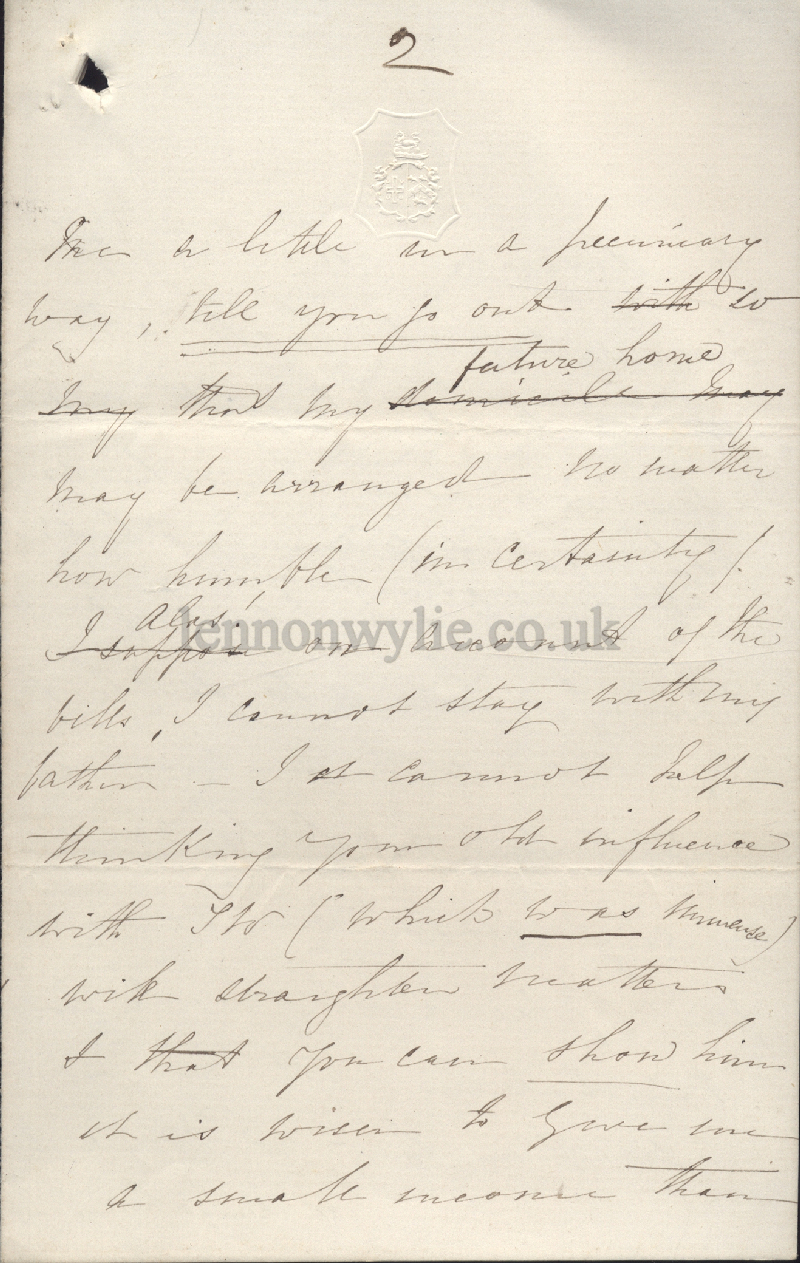 2
me a little in a pecuniary
way, till you go out with so
future home
my that my domicile may
may be arranged no matter
how humble (in certainty).
alas!
I suppose on account of the
lennonwylie.co.uk
bills, I cannot stay with my
father – I cannot help
thinking your old influence
with TW (which was immense)
will straighten matters
& that you can show him
it is wiser to give me
a small income than